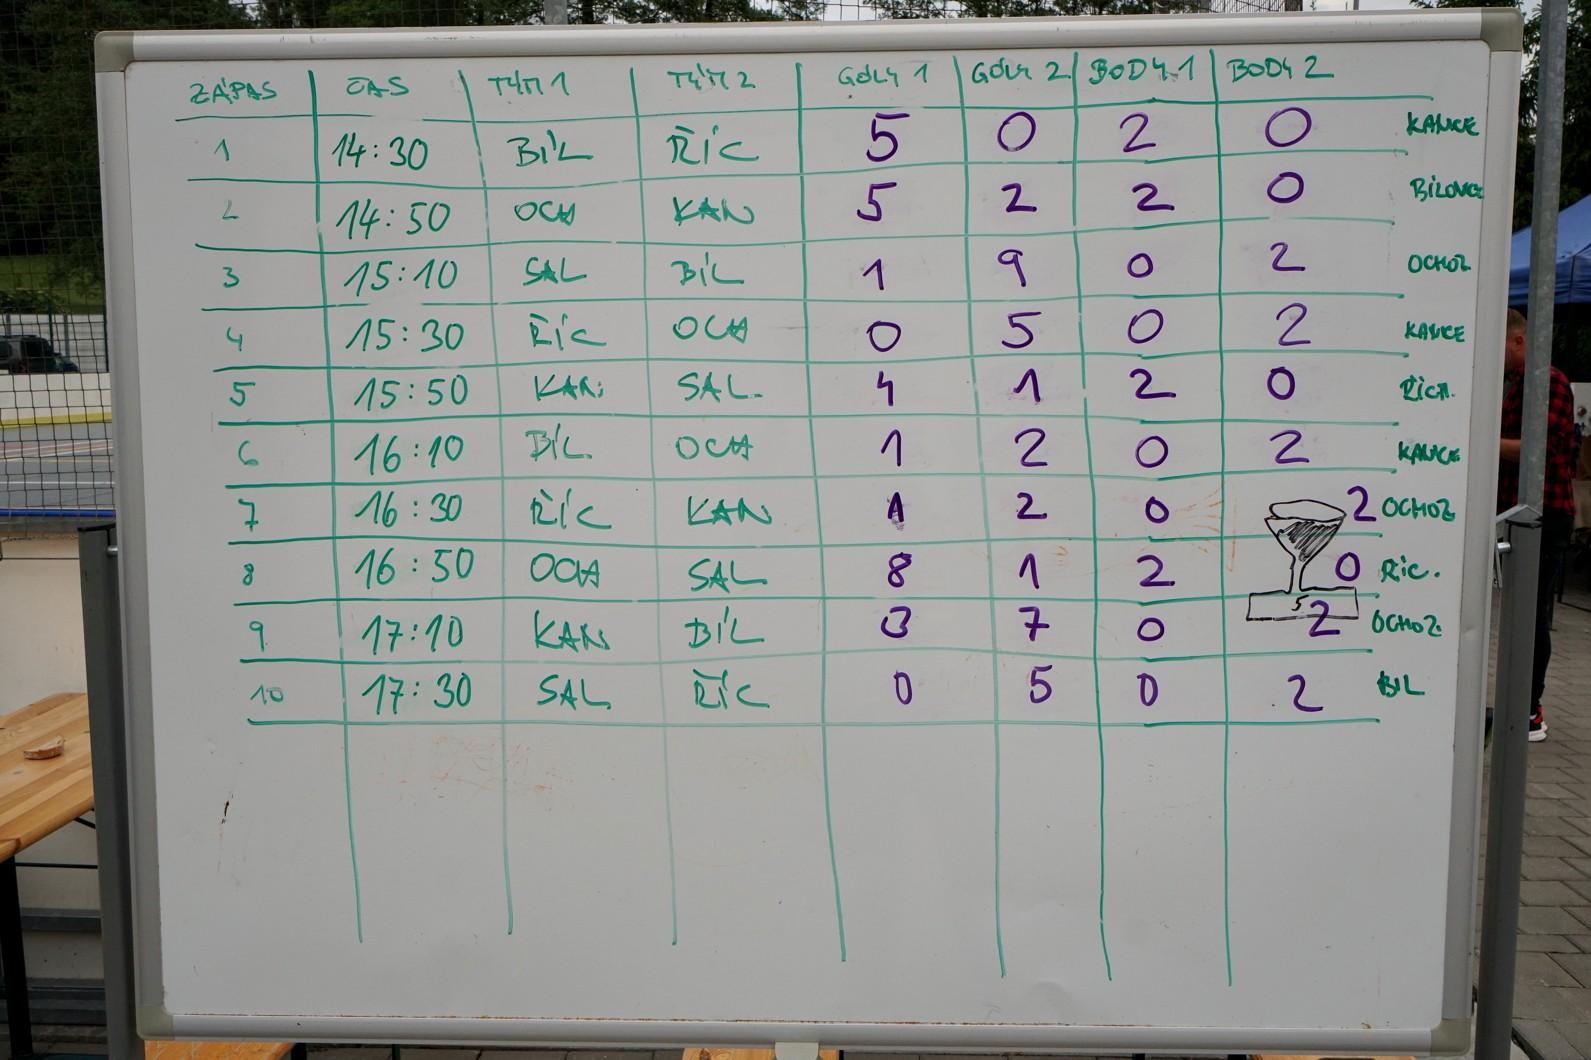 ZÁPAS ČAS TÝM 1 TÝM 2 GÓLY 1 GÓLY 2 BODY 1 BODY 2
1 14:30 BÍL ŘÍC 5 0 2 0 KANCE
2 14:50 OCH KAN 5 2 2 0 BÍLOVICE
3 15:10 SAL BÍL 1 9 0 2 OCHOZ
4 15:30 ŘÍC OCH 0 5 0 2 KANCE
5 15:50 KAN. SAL. 4 1 2 0 ŘÍCM.
6 16:10 BÍL. OCH 1 2 0 2 KANCE
7 16:30 ŘÍC KAN 1 2 0 2 OCHOZ
8 16:50 OCH SAL 8 1 2 0 ŘÍC.
9 17:10 KAN BÍL 3 7 0 2 OCHOZ
10 17:30 SAL ŘÍC 0 5 0 2 BÍL